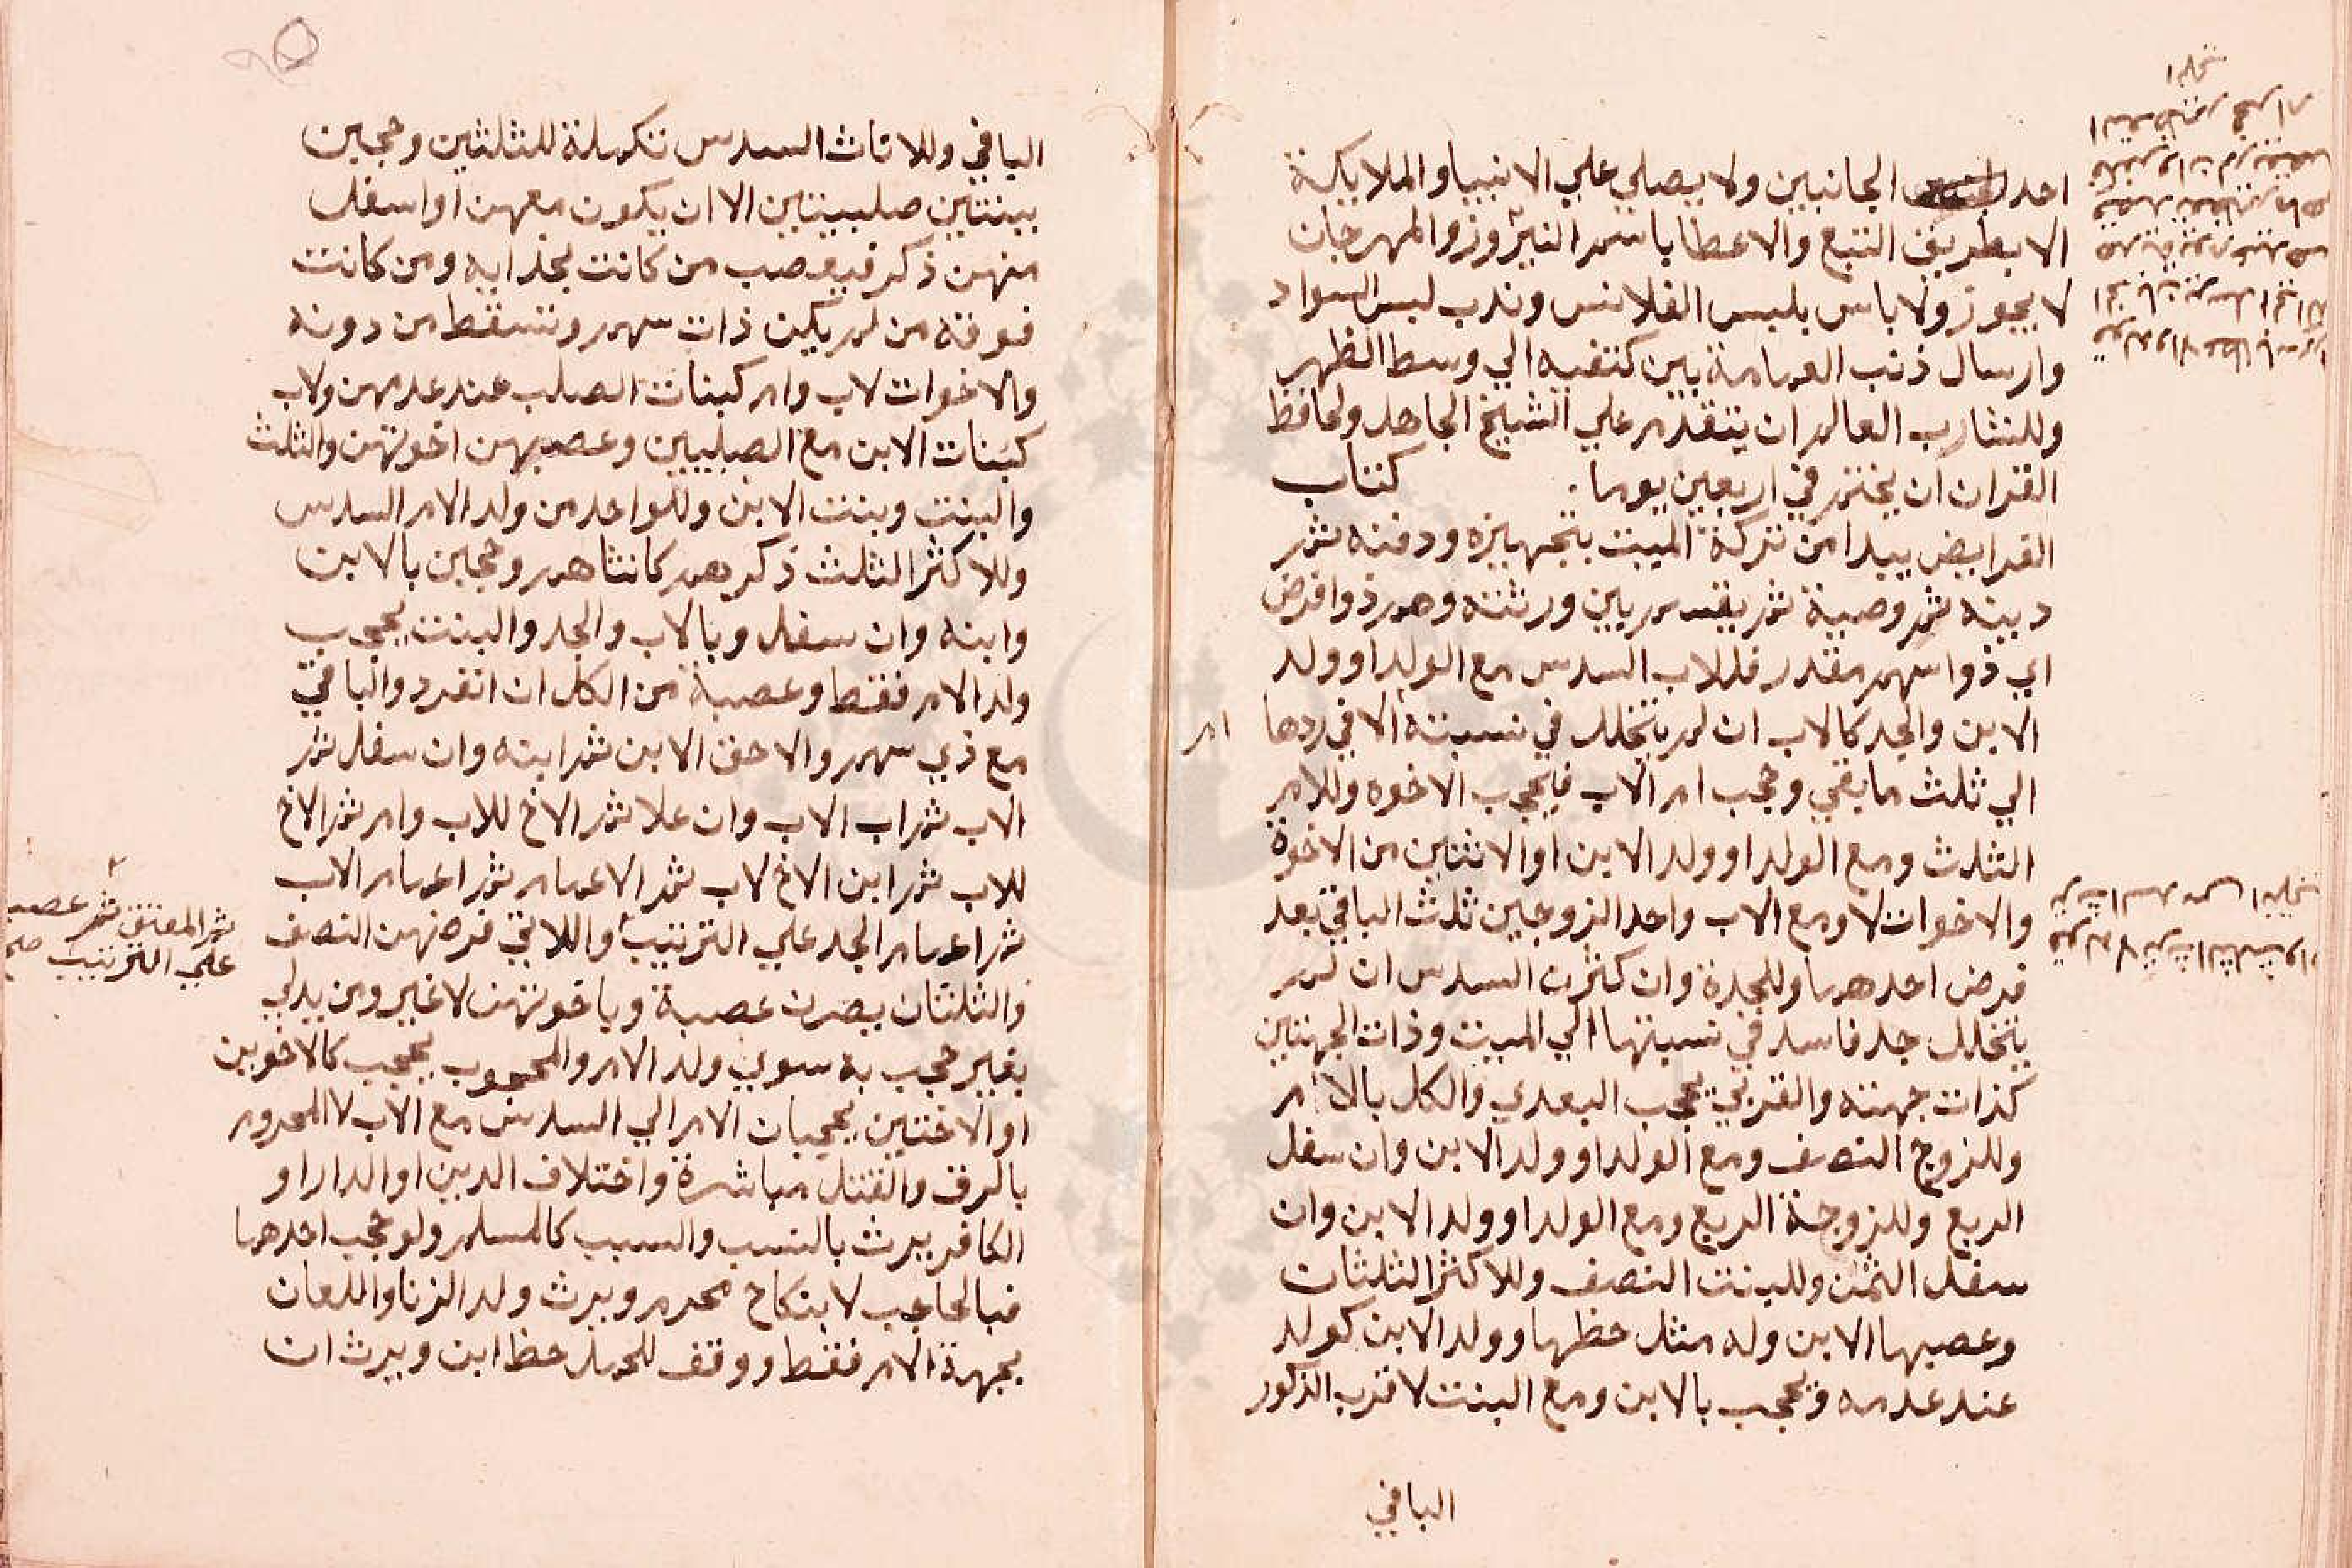 احد الجانبين ولا يصلي علي الانبيا والملايكة
الا بطريق التبع والاعطا باسم النيروز والمهرجان
لا يجوز ولا باس بلبس القلانس وندب لبس السواد
وارسال ذنب العمامة بين كتفيه الي وسط الظهر
وللشاب العالم ان يتقدم علي الشيخ الجاهل ولحافظ
القران ان يختم في اربعين يوما . كتاب
الفرايض يبدا من تركة الميت بتجهيزه ودفنه ثم
دينه ثم وصية ثم يقسم بين ورثته وهم ذوا فرض
اي ذوا سهم مقدر فللاب السدس مع الولد او ولد
الابن والجد كالاب ان لم يتخلل في نسبته الا في ردها
ام
الي ثلث ما بقي وحجب ام الاب فيحجب الاخوه وللام
الثلث ومع الولد او ولد الابن او الاثنين من الاخوة
والاخوات لا ومع الاب واحد الزوجين ثلث الباقي بعد
فرض احدهما وللجدة وان كثرن السدس ان لم
يتخلل جد فاسد في نسبتها الي الميت وذات الجهتين
كذات جهته والقربي تحجب البعدي والكل بالام
وللزوج النصف ومع الولد او ولد الابن وان سفل
الربع وللزوجة الربع ومع الولد او ولد الابن وان
سفل الثمن وللبنت النصف وللاكثر الثلثان
وعصبها الابن وله مثل حظها وولد الابن كولد
عند عدمه ويحجب بالابن ومع البنت لاقرب الذكور
الباقي
الباقي وللاناث السدس تكملة للثلثين وحجبن
ببنتين صلبيتين الا ان يكون معهن او اسفل
منهن ذكر فيعصب من كانت بحذايه ومن كانت
فوقه من لم يكن ذات سهم وتسقط من دونه
والاخوات لاب وام كبنات الصلب عند عدمهن ولاب
كبنات الابن مع الصلبيين وعصبهن اخوتهن والثلث
والبنت وبنت الابن وللواحد من ولد الام السدس
وللاكثر الثلث ذكرهم كانثاهم وحجبن بالابن
وابنه وان سفل وبالاب والجد والبنت يحجب
ولد الام فقط وعصبة من الكل ان انفرد والباقي
مع ذي سهم والاحق الابن ثم ابنه وان سفل ثم
الاب ثم اب الاب وان علا ثم الاخ للاب وام ثم الاخ
للاب ثم ابن الاخ لاب ثم الاعمام ثم اعمام الاب
ثم اعمام الجد علي الترتيب واللاتي فرضهن النصف
ثم المعتق ثم عصبه
علي الترتيب صح
والثلثان يصرن عصبة وباخوتهن لا غير ومن يدلي
بغير حجب به سوي ولد الام والمحجوب يحجب كالاخوين
او الاختين يحجبان الام الي السدس مع الاب لا المحروم
بالرق والقتل مباشرة واختلاف الدين او الدار او
الكافر يرث بالنسب والسبب كالمسلم ولو حجب احدهما
فبالحاجب لا بنكاح محرم ويرث ولد الزنا واللعان
بجهة الام فقط ووقف للحمل حظ ابن ويرث ان